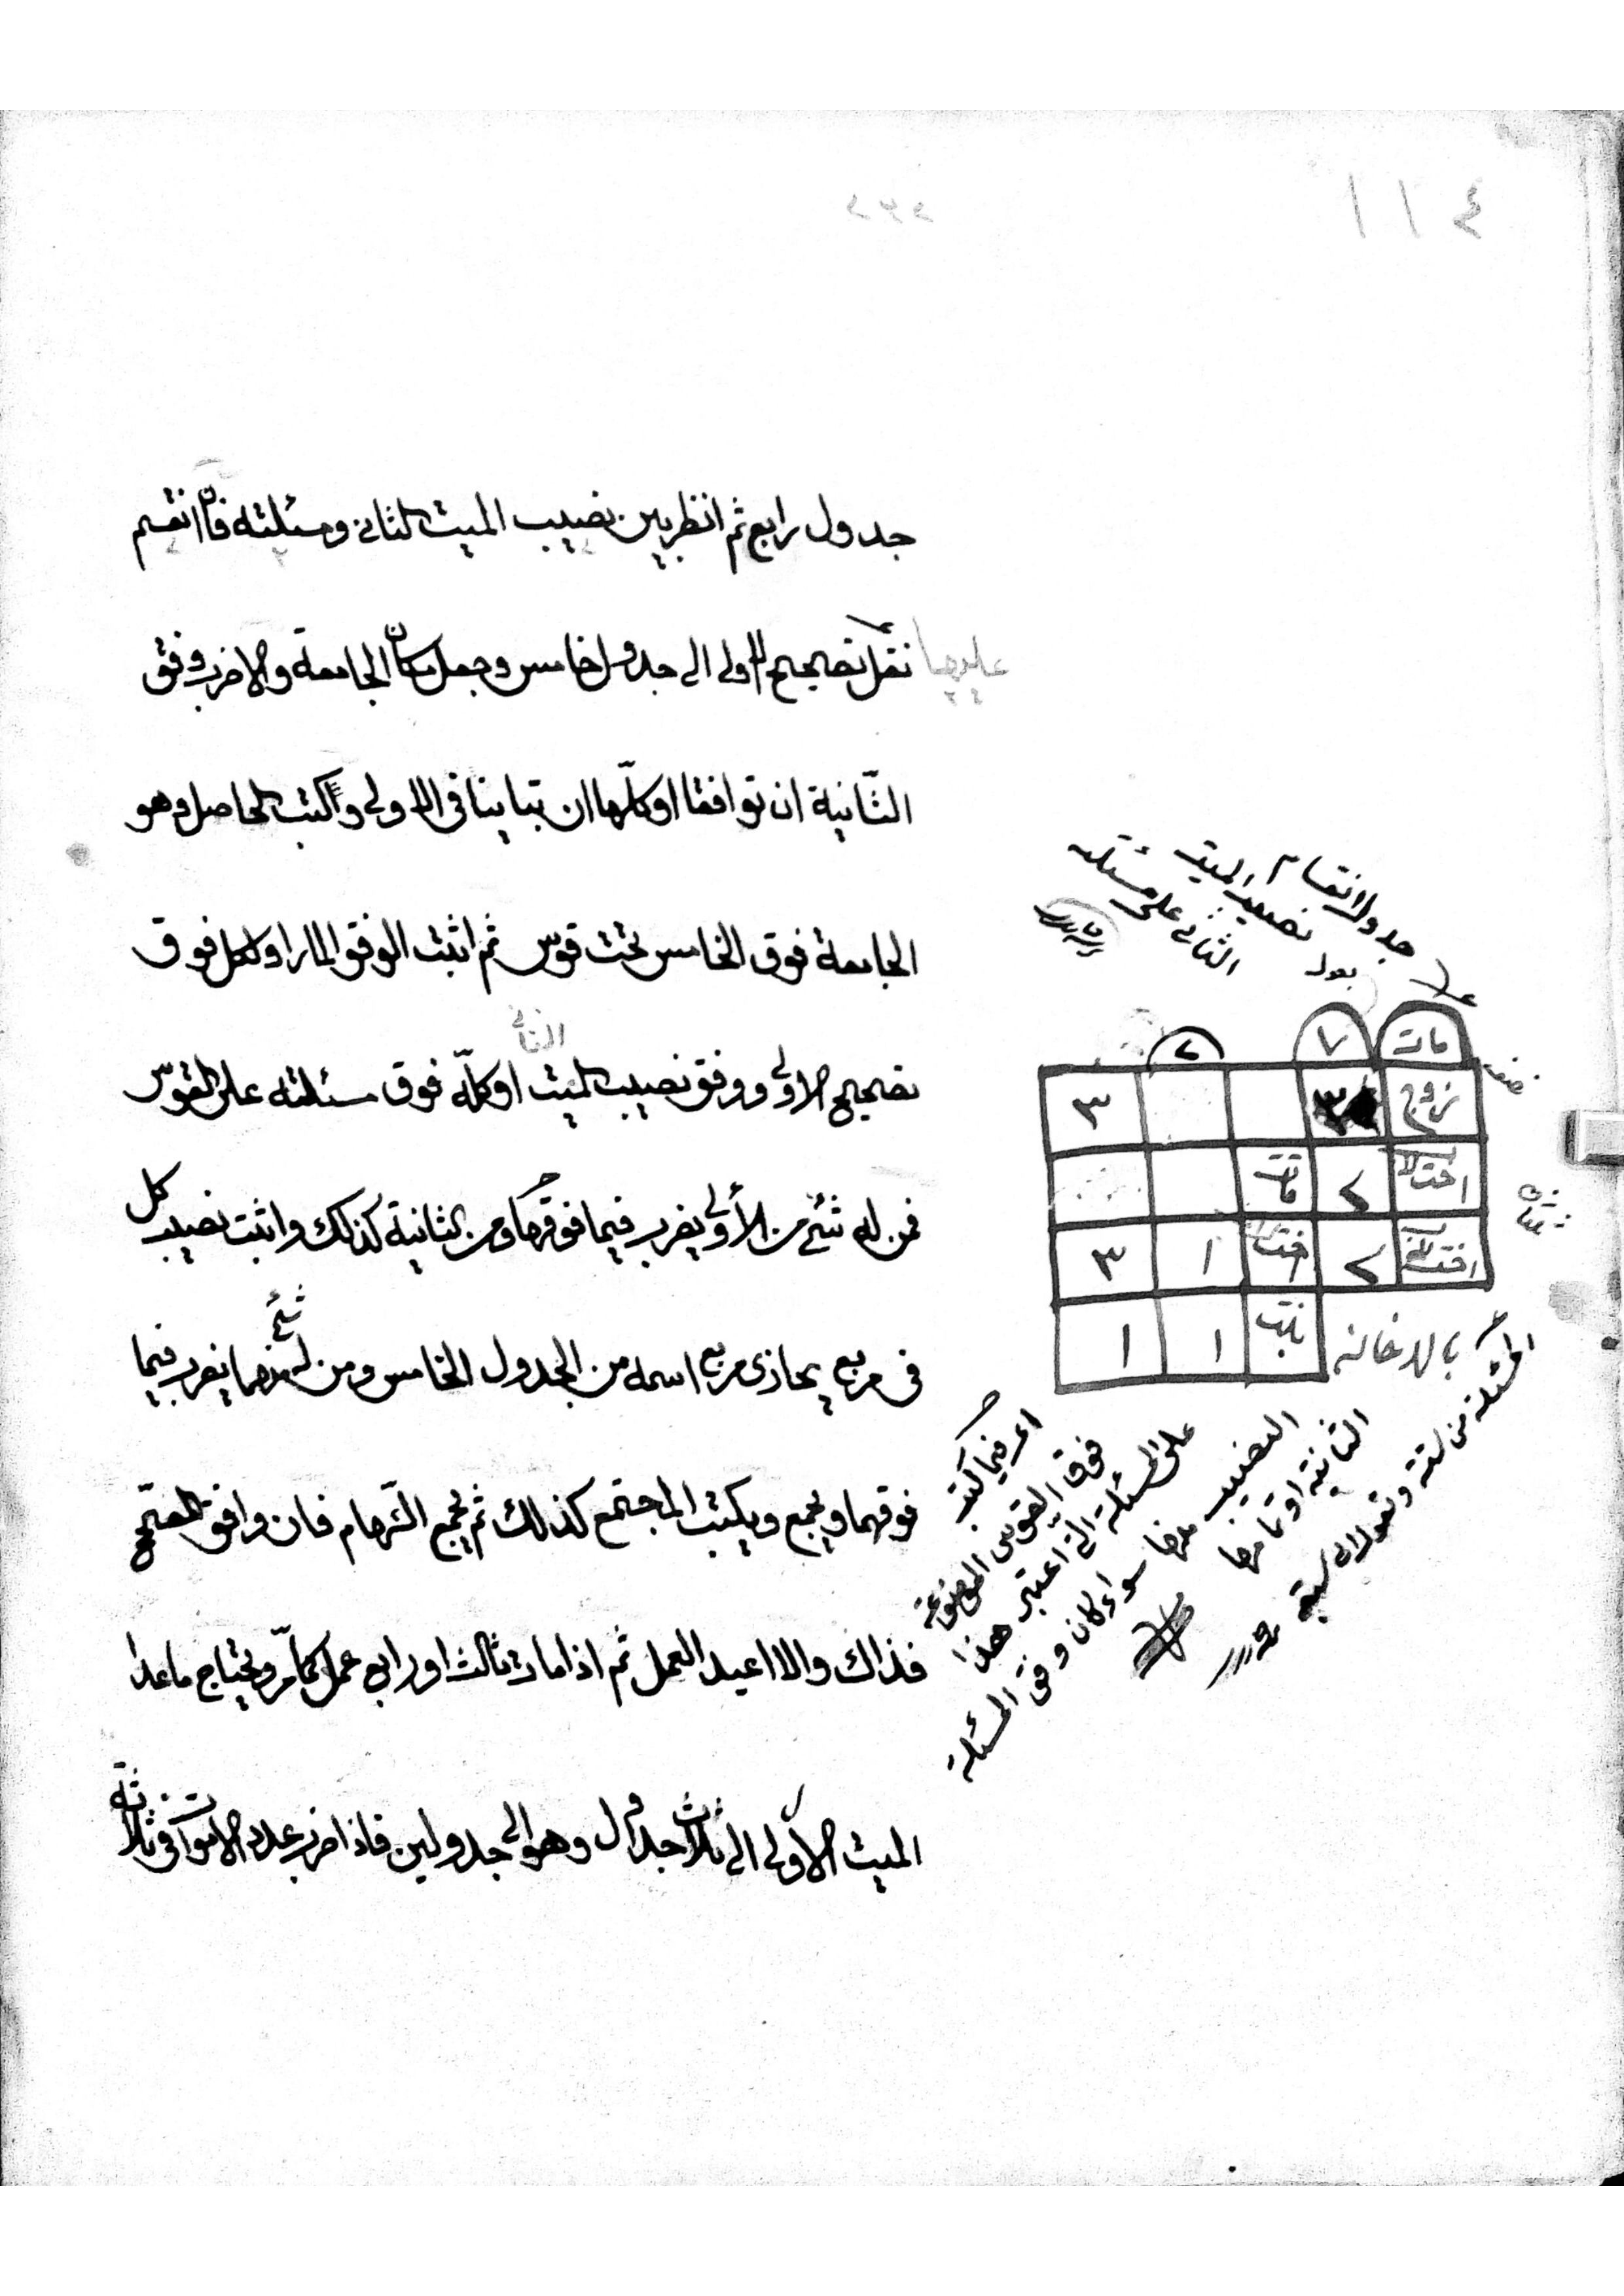 ٤ ١ ١
جدول رابع ثم انظر بين نصيب الميت الثاني ومسئلته فان انقسم
عليها نقل تصحيح الاولى الى جدول خامس وجعل مكان الجامعة والا ضرب وفق
الثّانية ان توافقا او كلّها ان تباينا في الاولى واكتب الحاصل وهو
الجامعة فوق الخامس تحت قوس ثم اثبت الوفق المار او الكل فوق
تصحيح الاولى ووفق نصيب الميت الثاني او كلّه فوق مسئلته على القوس
فمن له شئ من الأولى يضرب فيما فوقها ومن الثانية كذلك واثبت نصيب كل
في مربع يحاذى مربع اسمه من الجدول الخامس ومن له شئ منهما يضرب فيما
فوقهما ويجمع ويكتب المجتمع كذلك ثم يجمع السّهام فان وافق المصحّح
فذاك والا اعيد العمل ثم اذا مات ثالث او رابع عمل كما مرّ ويحتاج ما عدا
الميت الاولى الى ثلاث جداول وهو الى جدولين فاذا ضرب عدد الاموات في ثلاثة
جدول انقسام
نصيب الميت
الثاني على مسئلته
بعول
مات ٧ ٢
زوج ٣ ٣
اخت ٢ مات
اخت ٢ اخت ١ ٣
بنت ١ ١
اى فيما كتب
فوق القوس الموضوعة
على المسئلة التي اعتبر هذا
النصيب منها سواء كان وفق المسئلة
الثانية او تمامها
المسئلة من ستة وتعول الى سبعة